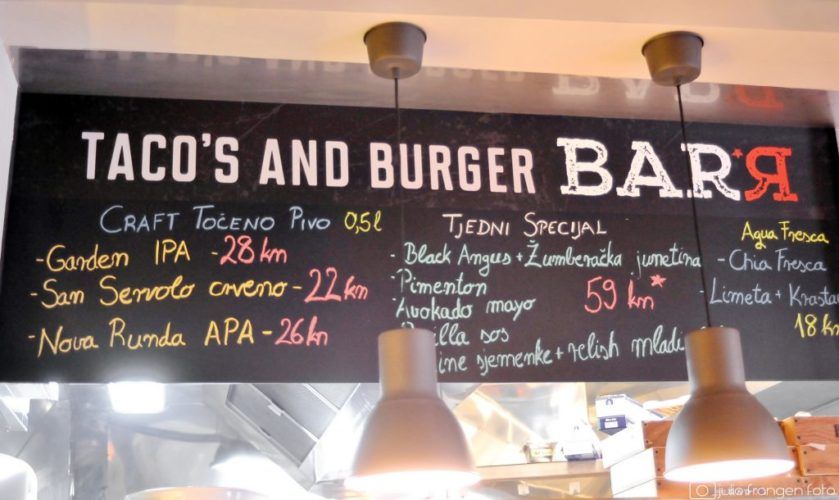 TACO'S AND BURGER BAR*Я
CRAFT TOČENO PIVO 0,5l
- Garden IPA - 28 kn
- San Servolo crveno - 22 kn
- Nova Runda APA - 26 kn
TJEDNI SPECIJAL
- Black Angus + Žumberačka junetina
- Pimenton
- Avokado mayo
59 kn*
sos
sjemenke + relish
Agua Fresca
- Chia Fresca
- Limeta +
18 kn
julio frangen foto